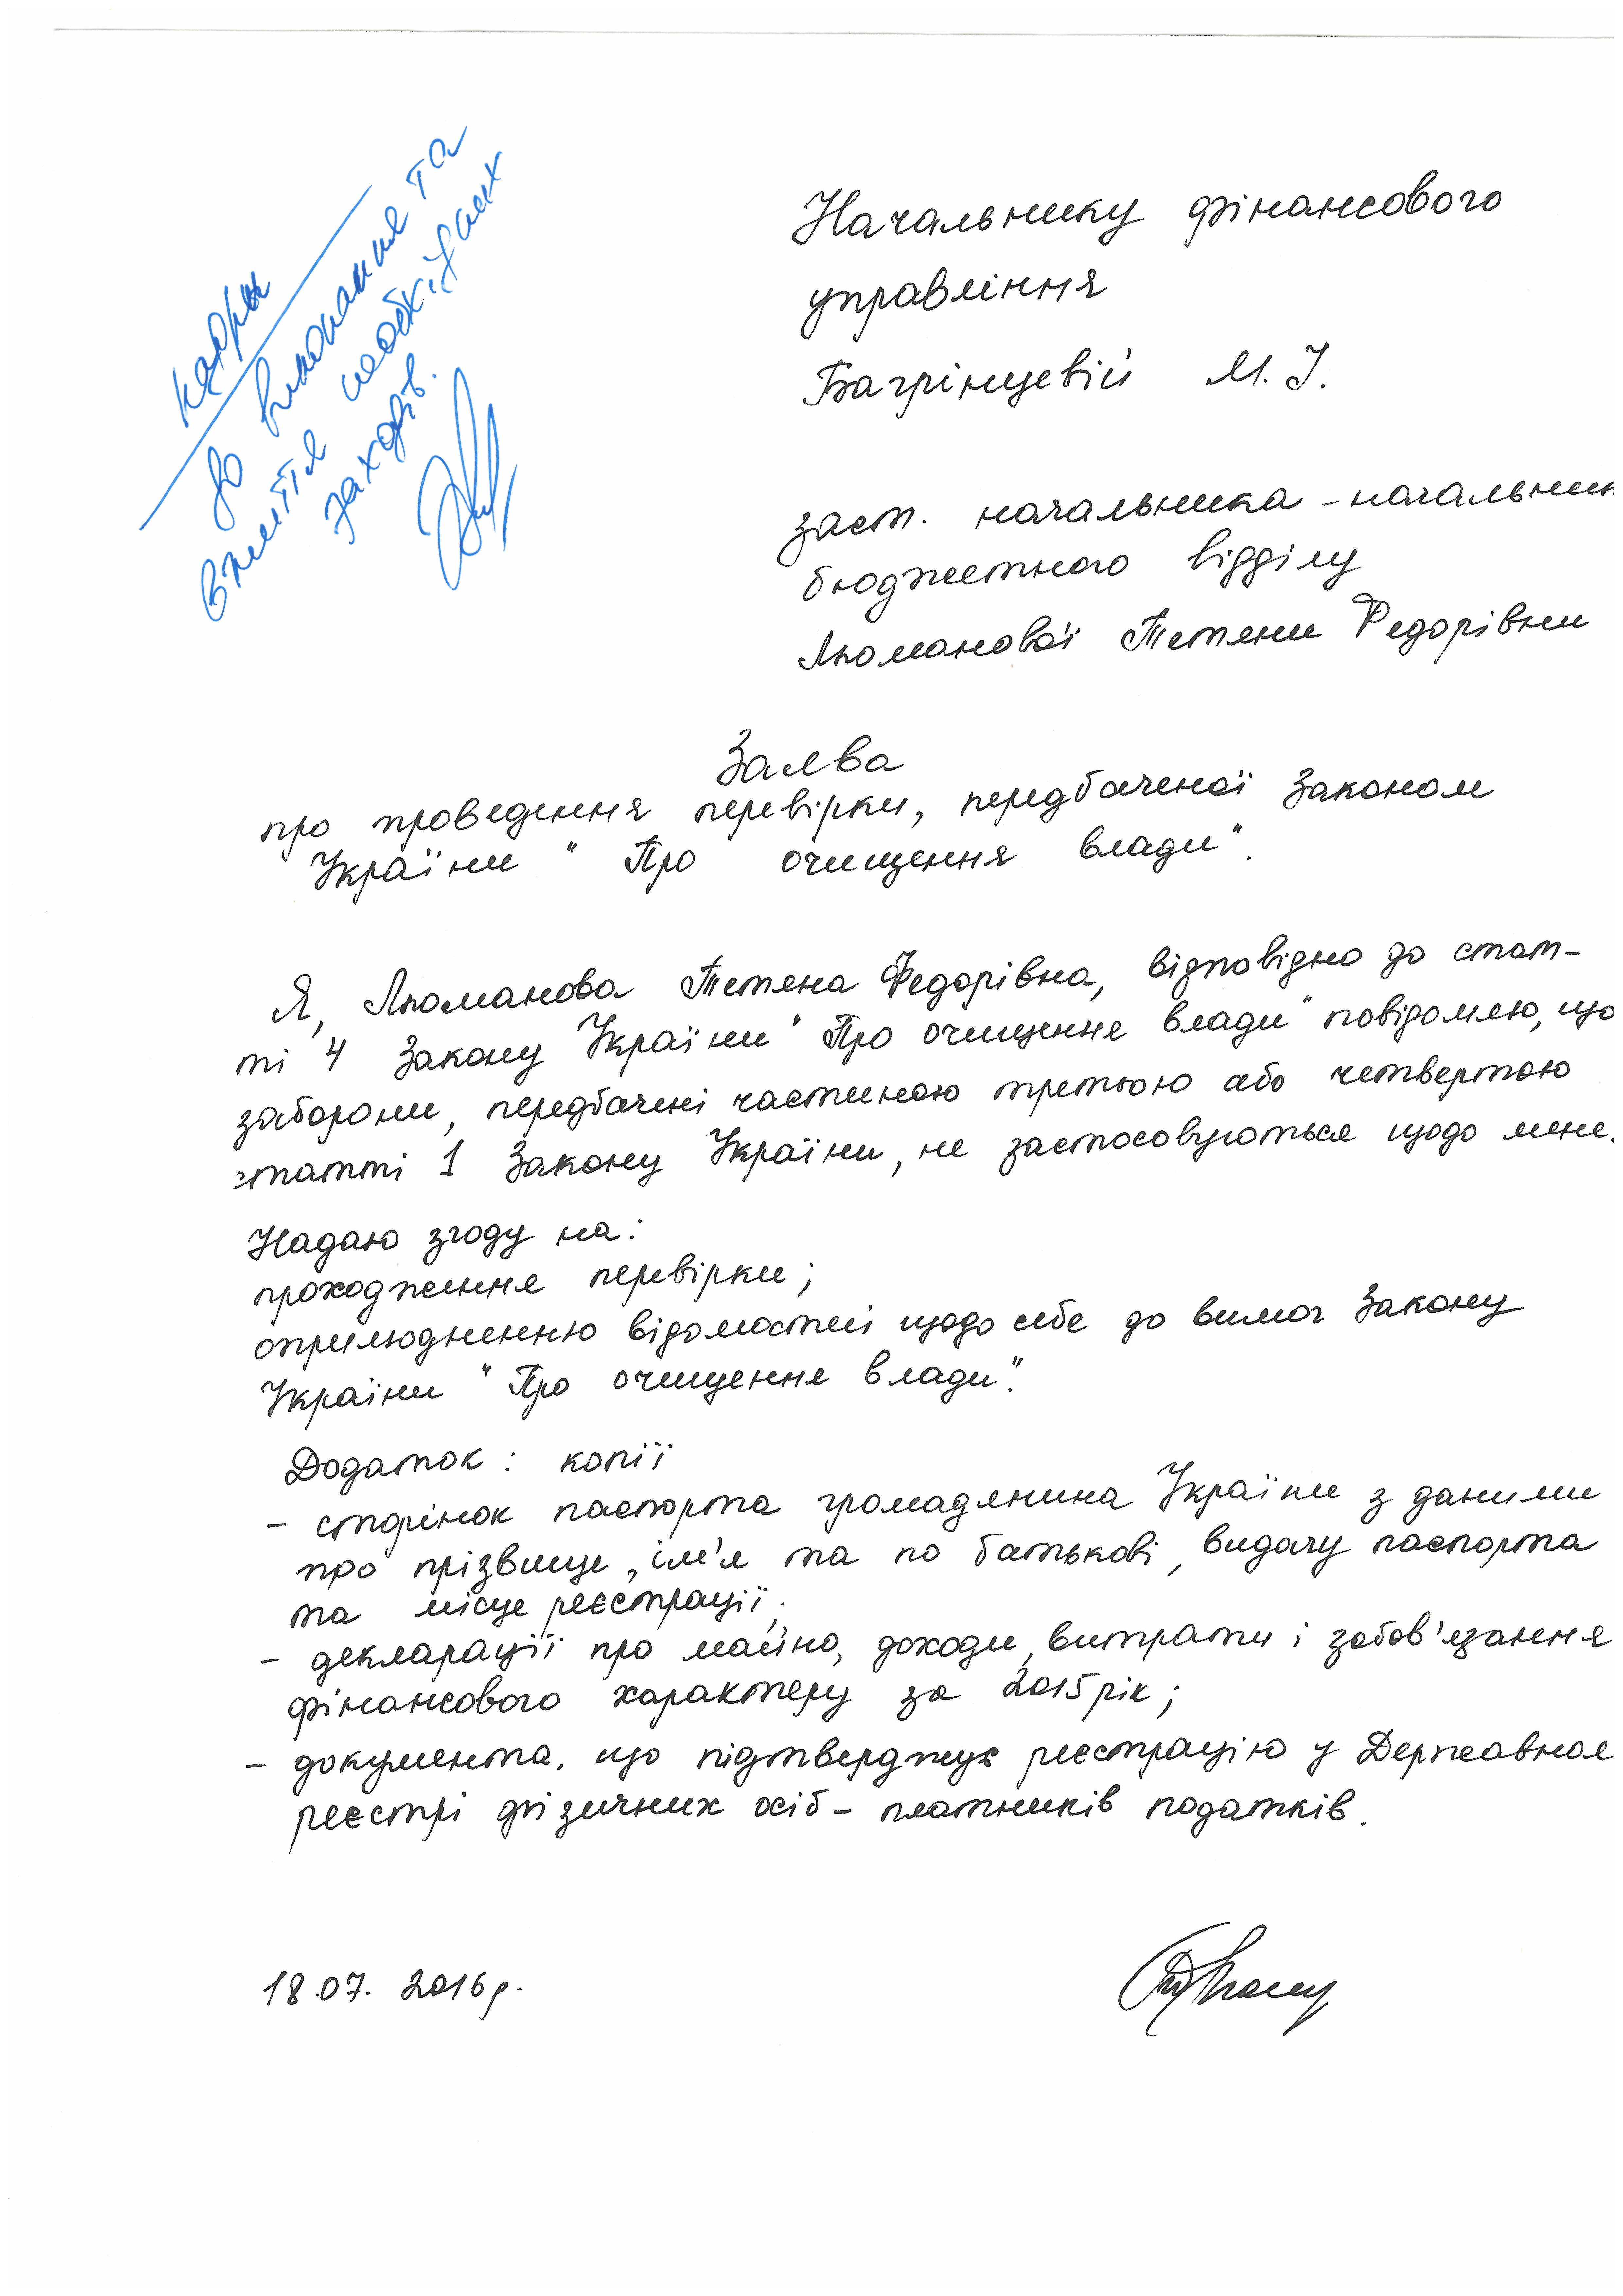 кадри
до виконання та
вжиття необхідних
заходів.
Начальнику фінансового
управління
Багрінцевій М. І.
заст. начальника - начальник
бюджетного відділу
Льоманової Тетяни Федорівни
Заява
про проведення перевірки, передбаченої Законом
України "Про очищення влади".
Я, Льоманова Тетяна Федорівна, відповідно до стат-
ті 4 Закону України "Про очищення влади" повідомляю, що
заборони, передбачені частиною третьою або четвертою
статті 1 Закону України, не застосовуються щодо мене.
Надаю згоду на:
проходження перевірки;
оприлюдненню відомостей щодо себе до вимог Закону
України "Про очищення влади".
Додаток: копії
- сторінок паспорта громадянина України з даними
про прізвище, ім'я та по батькові, видачу паспорта
та місце реєстрації;
- декларації про майно, доходи, витрати і зобов'язання
фінансового характеру за 2015 рік;
- документа, що підтверджує реєстрацію у Державном
реєстрі фізичних осіб - платників податків.
18.07. 2016 р.